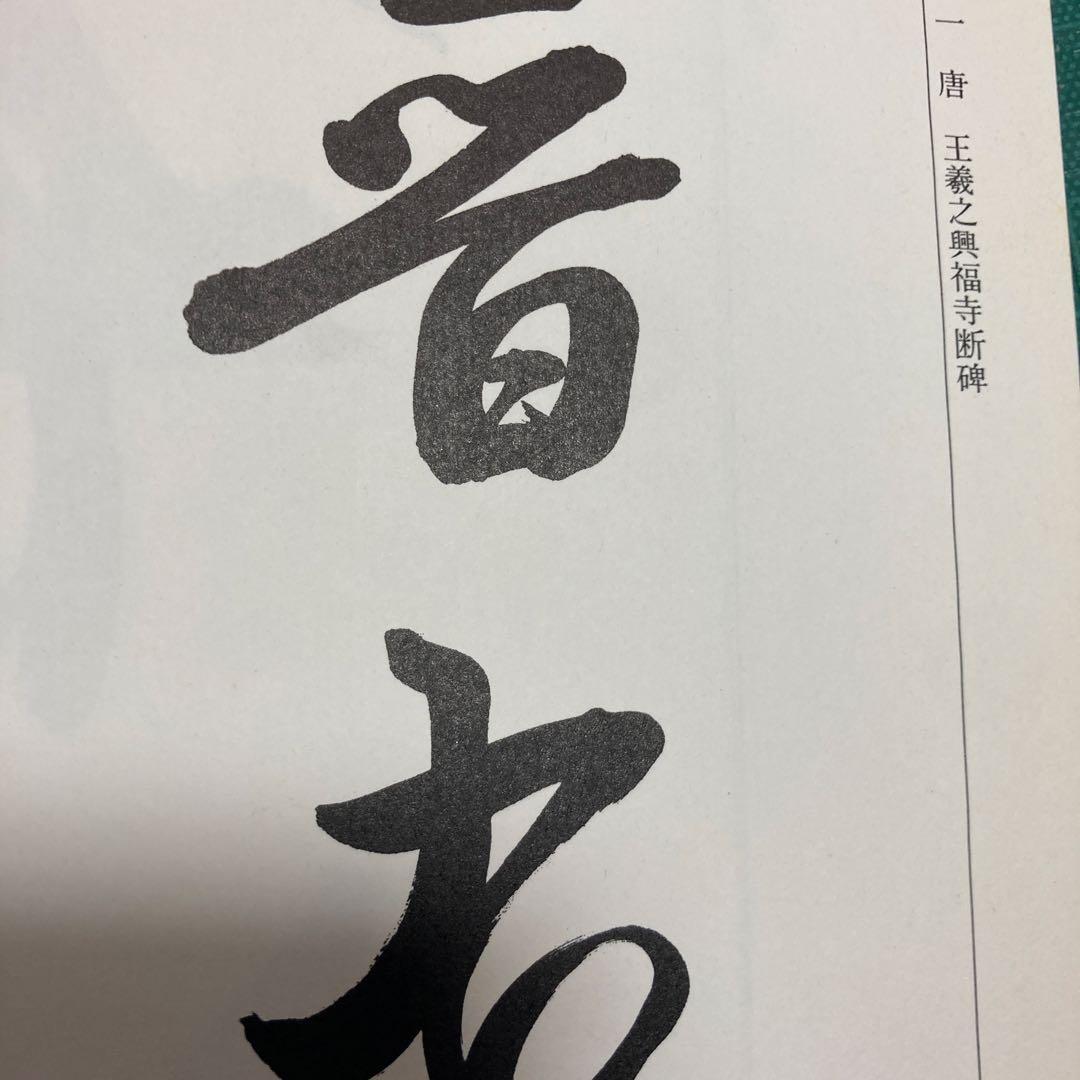 一 唐 王羲之興福寺断碑
首